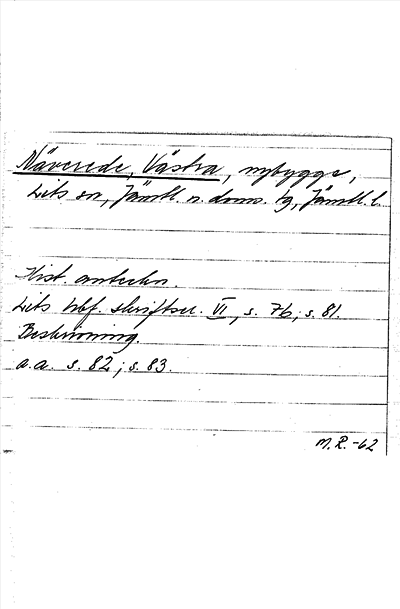 Näverede, Västra, nybygge,
Lits sn, Jämtl. n. doms. tg, Jämtl. l.
Hist. anteckn.
Lits hbf. skriftser. VI, s. 76, s. 81.
Beskrivning.
a.a. s. 82; s. 83.
M.R.-62